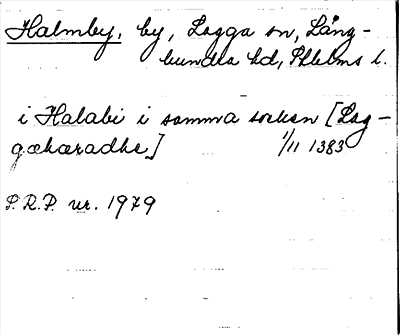 Halmby, by, Lagga sn, Lång-
hundra hd, Sthlms l.
i Halabi i samma socken [Lag-
gæhæradhe] 1/11 1383
S.R.P. nr. 1979